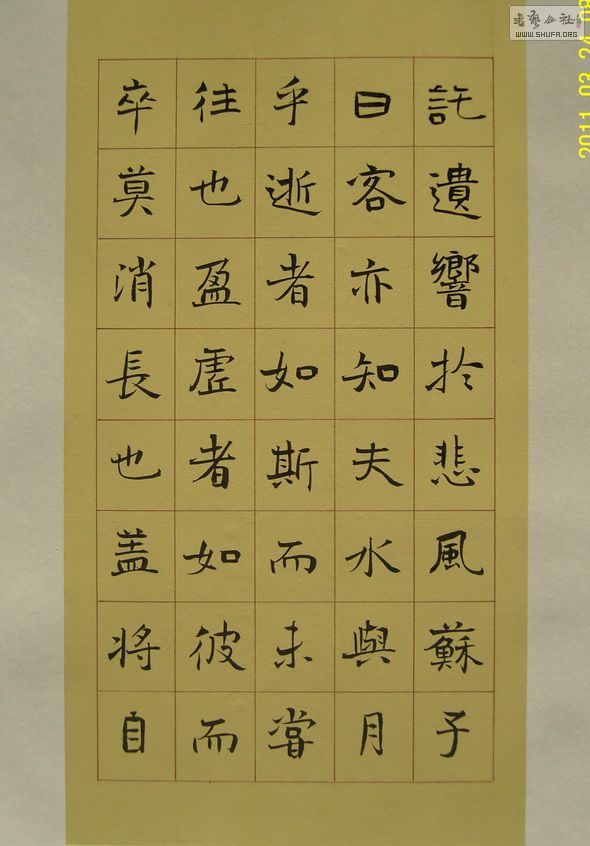 託遺響於悲風蘇子
曰客亦知夫水與月
乎逝者如斯而未嘗
往也盈虛者如彼而
卒莫消長也盖将自
WWW.SHUFA.ORG
2011 03 24